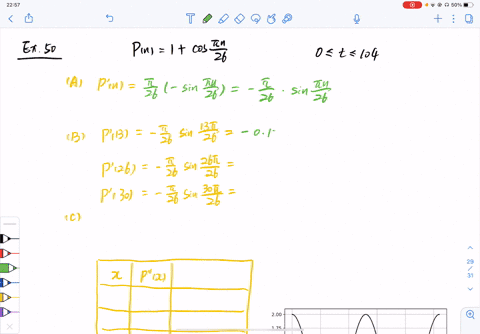 22:57
50%
Ex. 50 P(n) = 1 + cos πn/26 0 ≤ t ≤ 104
(A) P'(n) = π/26 (- sin πn/26) = - π/26 · sin πn/26
(B) P'(13) = - π/26 sin 13π/26 = - 0.1
P'(26) = - π/26 sin 26π/26 =
P'(30) = - π/26 sin 30π/26 =
(C)
x P'(x)
29 / 31
2.00
1.75